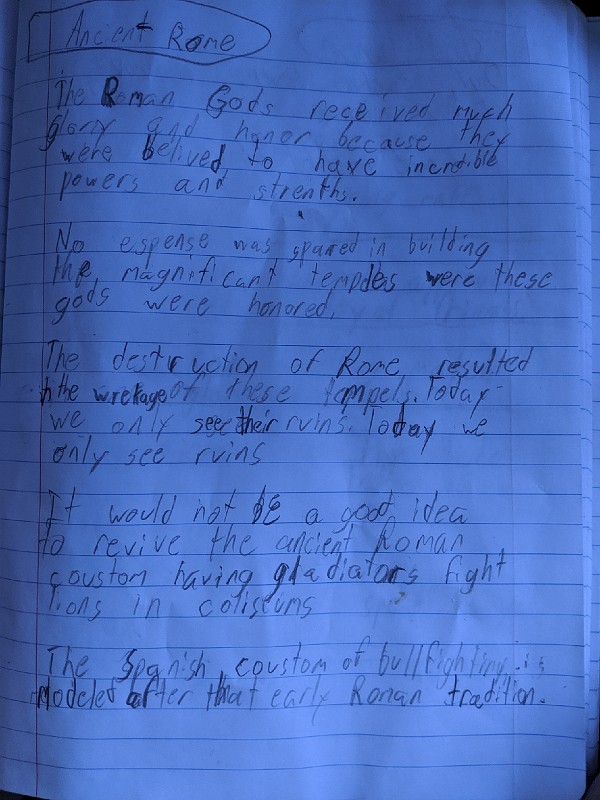 Ancient Rome
The Roman Gods received much
glory and honor because they
were belived to have incredible
powers and strenths.
No espense was spared in building
the magnificant tempdes were these
gods were honored.
The destruction of Rome resulted
in the wrekage of these tampels. Today
we only see their ruins. Today we
only see ruins
It would not be a good idea
to revive the ancient Roman
coustom having gladiators fight
lions in coliseums
The Spanish coustom of bullfighting is
Modeled after that early Roman tradition.